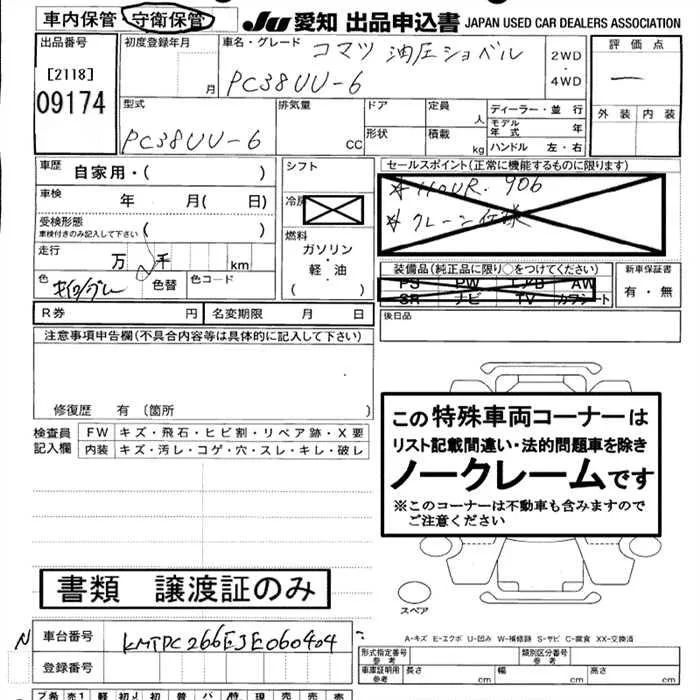 車内保管 守衛保管
JU 愛知 出品申込書 JAPAN USED CAR DEALERS ASSOCIATION
出品番号
[2118]
09174
初度登録年月
月
車名・グレード
コマツ 油圧ショベル
PC38UU-6
2WD
・
4WD
評価点
―
外装 内装
型式
PC38UU-6
排気量
CC
ドア
形状
定員
人
積載
kg
ディーラー・並行
モデル年式 年
ハンドル 左・右
車歴 自家用・( )
車検 年 月( 日)
受検形態
車検付きのみ記入して下さい ( )
走行 万 千 km
色 キイロ/グレー 色替 色コード
シフト
冷房
燃料
ガソリン
・
軽・油
( )
セールスポイント(正常に機能するものに限ります)
☆ HOUR. 906
☆ クレーン仕様
装備品(純正品に限り○をつけてください)
PS PW AW
SR ナビ TV カワシート
新車保証書
有・無
R券 円 名変期限 月 日
後日品
注意事項申告欄(不具合内容等は具体的に記入して下さい)
修復歴 有(箇所 )
検査員
記入欄
FW キズ・飛石・ヒビ割・リペア跡・X要
内装 キズ・汚レ・コゲ・穴・スレ・キレ・破レ
この特殊車両コーナーは
リスト記載間違い・法的問題車を除き
ノークレームです
※このコーナーは不動車も含みますので
ご注意ください
書類 譲渡証のみ
スペア
A-キズ E-エクボ U-凹み W-補修跡 S-サビ C-腐食 XX-交換済
N 車台番号 KMTPC266EJE060404
登録番号
形式指定番号
参考
類別区分番号
参考
車庫証明用
参考
長さ cm 幅 cm 高さ cm